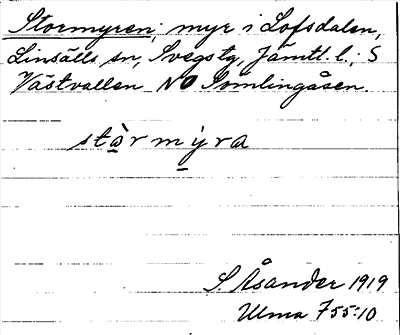 Stormyren; myr i Lofsdalen,
Linsälls sn, Svegs tg, Jämtl. l.; S
Västvallen NO Somlingåsen.
stàrmýra
S. Åsander 1919
Ulma 755:10